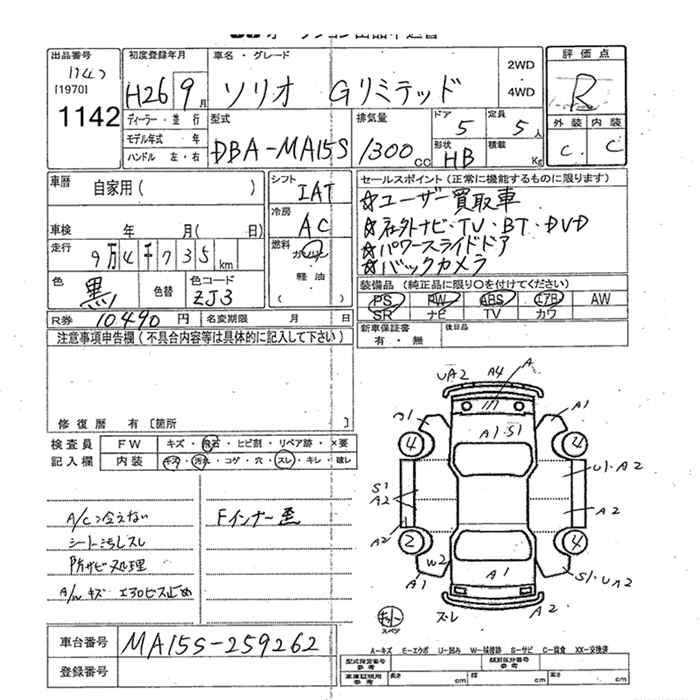 出品番号
1142
[1970]
1142
初度登録年月
H26 9月
車名・グレード
ソリオ Gリミテッド
2WD
・
4WD
評価点
R
外装 内装
C C
ディーラー・並行
モデル年式・年
ハンドル 左・右
型式
DBA-MA15S
排気量
1300cc
ドア
5
定員
5人
形状
HB
積載
Kg
車歴
自家用( )
車検 年 月( 日)
走行
9万4千735km
色
黒
色替
色コード
ZJ3
シフト
IAT
冷房
AC
燃料
ガソリン
・
軽油
( )
セールスポイント(正常に機能するものに限ります)
☆ユーザー買取車
☆社外ナビ・TV・BT・DVD
☆パワースライドドア
☆バックカメラ
装備品(純正品に限り○を付けてください)
PS PW ABS エアB AW
SR ナビ TV カワ
R券 10490円 名変期限 月 日
新車保証書
有・無
後日品
注意事項申告欄(不具合内容等は具体的に記入して下さい)
修復歴 有〔箇所 〕
検査員
記入欄
FW キズ・飛石・ヒビ割・リペア跡・×要
内装 キズ・汚れ・コゲ・穴・スレ・キレ・破レ
A/C冷えない
シート汚レスレ
防サビ処理
A/Wキズ エアロビス止め
Fインナー歪
UA2 A4 A
A1
A1・S1
4 4
U1・A2
S1
A2
A2
A2
2 4
W2
A1
A1
S1・UA2
ズレ
A2
スペア
A-キズ E-エクボ U-凹み W-補修跡 S-サビ C-腐食 XX-交換済
車台番号
MA15S-259262
登録番号
型式指定番号
参考
類別区分番号
参考
車庫証明用
参考
長さ cm cm cm